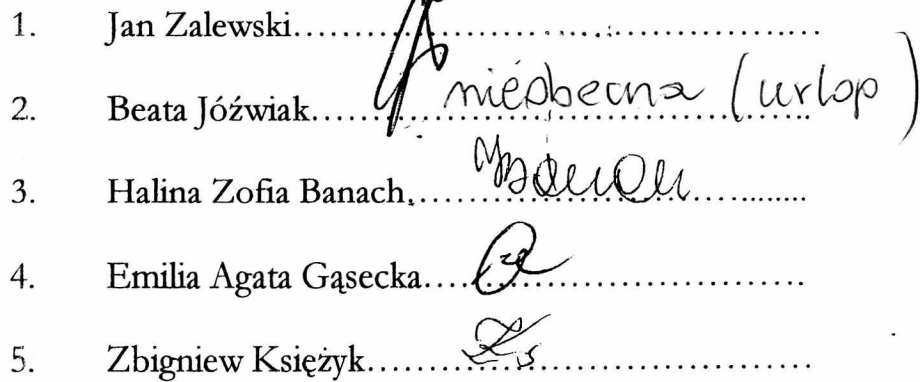 1. Jan Zalewski..................................................
2. Beata Jóźwiak........nieobecna (urlop)
3. Halina Zofia Banach..................................
4. Emilia Agata Gąsecka..................................
5. Zbigniew Księżyk..........................................